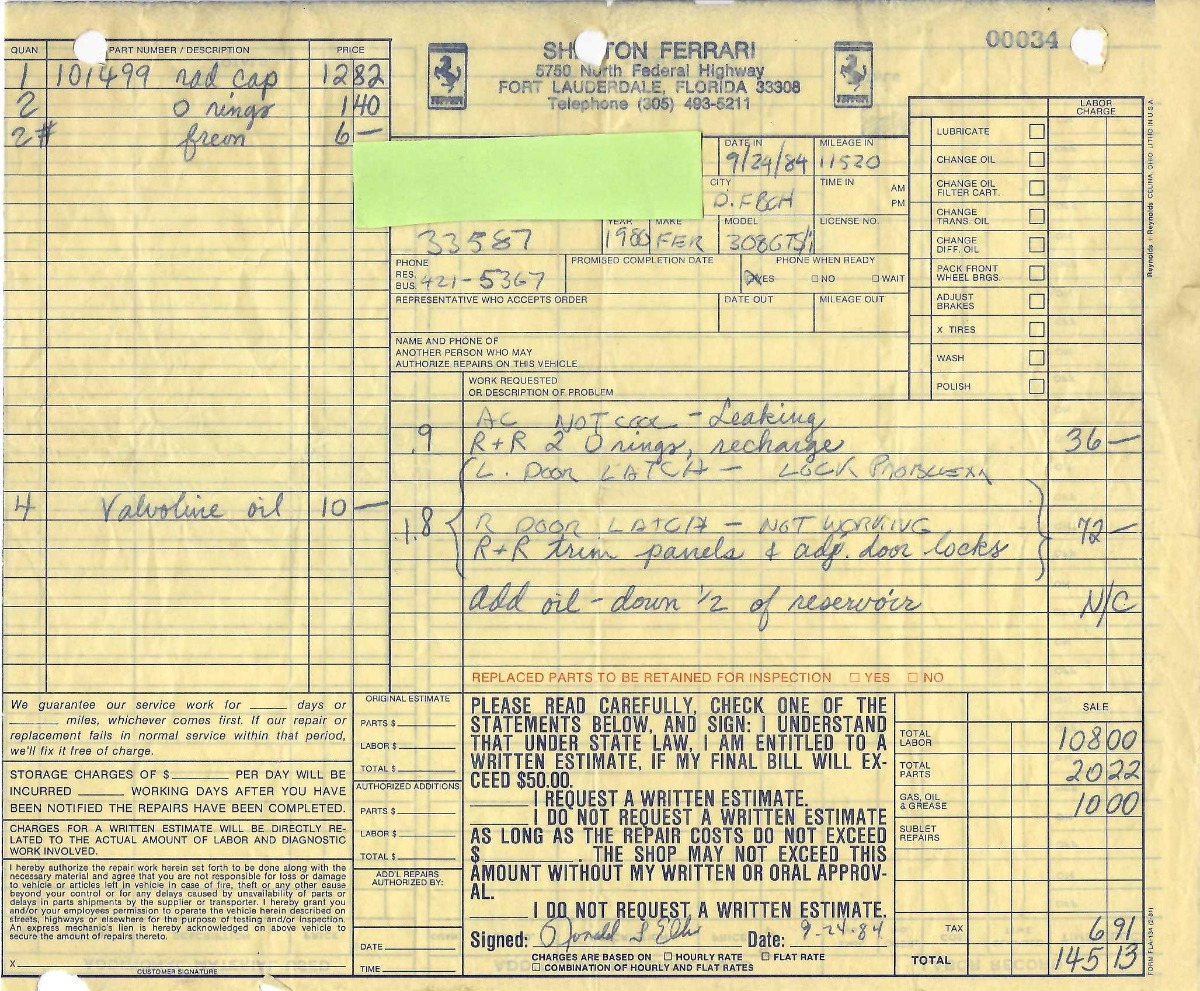 00034
SH TON FERRARI
5750 North Federal Highway
FORT LAUDERDALE, FLORIDA 33308
Telephone (305) 493-5211
QUAN. PART NUMBER / DESCRIPTION PRICE
1 101499 rad cap 12 82
2 O rings 1 40
2# freon 6 —
4 Valvoline oil 10 —
DATE IN 9/24/84 MILEAGE IN 11520
CITY D.F BCH TIME IN AM PM
33587 YEAR 1980 MAKE FER MODEL 308GTSi LICENSE NO.
PHONE
RES.
BUS. 421-5367
PROMISED COMPLETION DATE
PHONE WHEN READY
☒ YES ☐ NO ☐ WAIT
REPRESENTATIVE WHO ACCEPTS ORDER DATE OUT MILEAGE OUT
NAME AND PHONE OF
ANOTHER PERSON WHO MAY
AUTHORIZE REPAIRS ON THIS VEHICLE
LABOR CHARGE
LUBRICATE ☐
CHANGE OIL ☐
CHANGE OIL FILTER CART. ☐
CHANGE TRANS. OIL ☐
CHANGE DIFF. OIL ☐
PACK FRONT WHEEL BRGS. ☐
ADJUST BRAKES ☐
X TIRES ☐
WASH ☐
POLISH ☐
Reynolds + Reynolds CELINA, OHIO LITHO IN U.S.A.
WORK REQUESTED
OR DESCRIPTION OF PROBLEM
AC NOT COOL - Leaking
.9 R+R 2 O rings, recharge 36 —
L. DOOR LATCH - LOCK PROBLEM
R DOOR LATCH - NOT WORKING
1.8 R+R trim panels & adj. door locks 72 —
Add oil - down 1/2 of reservoir N/C
REPLACED PARTS TO BE RETAINED FOR INSPECTION ☐ YES ☐ NO
We guarantee our service work for ____ days or
____ miles, whichever comes first. If our repair or
replacement fails in normal service within that period,
we'll fix it free of charge.
STORAGE CHARGES OF $____ PER DAY WILL BE
INCURRED ____ WORKING DAYS AFTER YOU HAVE
BEEN NOTIFIED THE REPAIRS HAVE BEEN COMPLETED.
CHARGES FOR A WRITTEN ESTIMATE WILL BE DIRECTLY RE-
LATED TO THE ACTUAL AMOUNT OF LABOR AND DIAGNOSTIC
WORK INVOLVED.
I hereby authorize the repair work herein set forth to be done along with the
necessary material and agree that you are not responsible for loss or damage
to vehicle or articles left in vehicle in case of fire, theft or any other cause
beyond your control or for any delays caused by unavailability of parts or
delays in parts shipments by the supplier or transporter. I hereby grant you
and/or your employees permission to operate the vehicle herein described on
streets, highways or elsewhere for the purpose of testing and/or inspection.
An express mechanic's lien is hereby acknowledged on above vehicle to
secure the amount of repairs thereto.
X
CUSTOMER SIGNATURE
ORIGINAL ESTIMATE
PARTS $
LABOR $
TOTAL $
AUTHORIZED ADDITIONS
PARTS $
LABOR $
TOTAL $
ADD'L REPAIRS
AUTHORIZED BY:
DATE
TIME
PLEASE READ CAREFULLY, CHECK ONE OF THE
STATEMENTS BELOW, AND SIGN: I UNDERSTAND
THAT UNDER STATE LAW, I AM ENTITLED TO A
WRITTEN ESTIMATE, IF MY FINAL BILL WILL EX-
CEED $50.00.
____ I REQUEST A WRITTEN ESTIMATE.
____ I DO NOT REQUEST A WRITTEN ESTIMATE
AS LONG AS THE REPAIR COSTS DO NOT EXCEED
$____. THE SHOP MAY NOT EXCEED THIS
AMOUNT WITHOUT MY WRITTEN OR ORAL APPROV-
AL.
____ I DO NOT REQUEST A WRITTEN ESTIMATE.
Signed: Donald Date: 9-24-84
CHARGES ARE BASED ON ☐ HOURLY RATE ☐ FLAT RATE
☐ COMBINATION OF HOURLY AND FLAT RATES
SALE
TOTAL LABOR 108 00
TOTAL PARTS 20 22
GAS, OIL & GREASE 10 00
SUBLET REPAIRS
TAX 6 91
TOTAL 145 13
FORM FLA-134 (2-81)